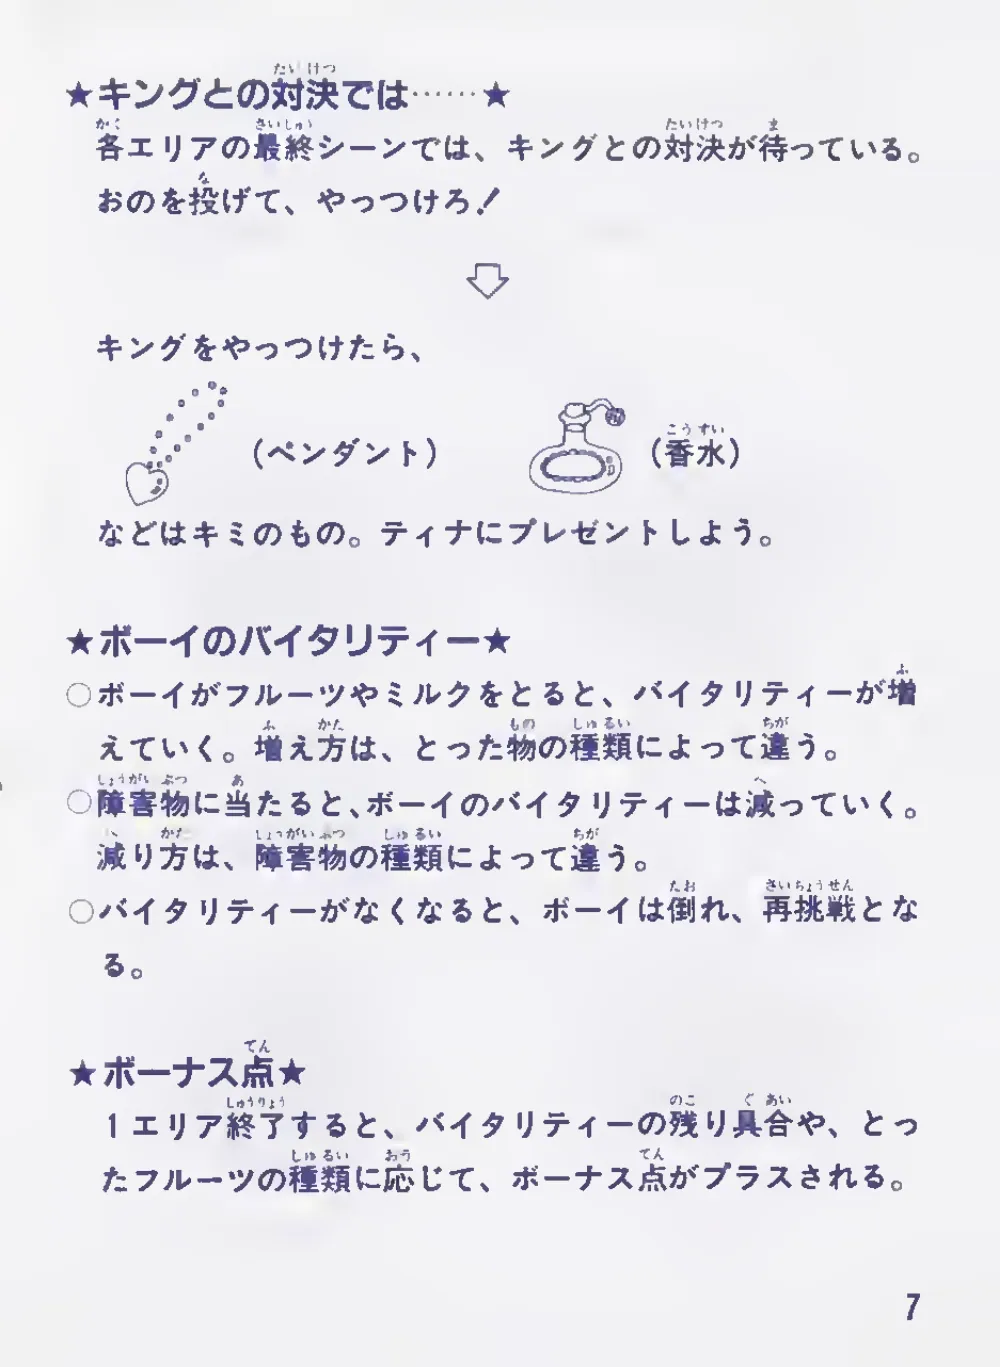 ★キングとの対決では……★
各エリアの最終シーンでは、キングとの対決が待っている。
おのを投げて、やっつけろ！
キングをやっつけたら、
（ペンダント）　（香水）
などはキミのもの。ティナにプレゼントしよう。
★ボーイのバイタリティー★
○ボーイがフルーツやミルクをとると、バイタリティーが増
えていく。増え方は、とった物の種類によって違う。
○障害物に当たると、ボーイのバイタリティーは減っていく。
減り方は、障害物の種類によって違う。
○バイタリティーがなくなると、ボーイは倒れ、再挑戦とな
る。
★ボーナス点★
1エリア終了すると、バイタリティーの残り具合や、とっ
たフルーツの種類に応じて、ボーナス点がプラスされる。
7